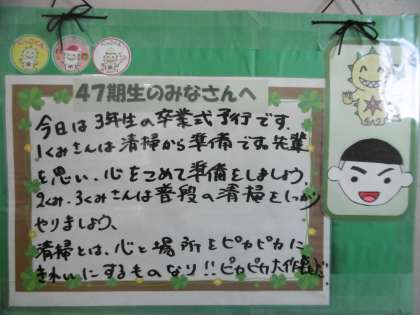 47期生のみなさんへ
今日は3年生の卒業式予行です。
1くみさんは清掃から準備です。先輩
を思い、心をこめて準備をしましょう。
2くみ・3くみさんは普段の清掃をしっかり
やりましょう、
清掃とは、心と場所をピカピカに
きれいにするものなり!!ピカピカ大作戦だ。